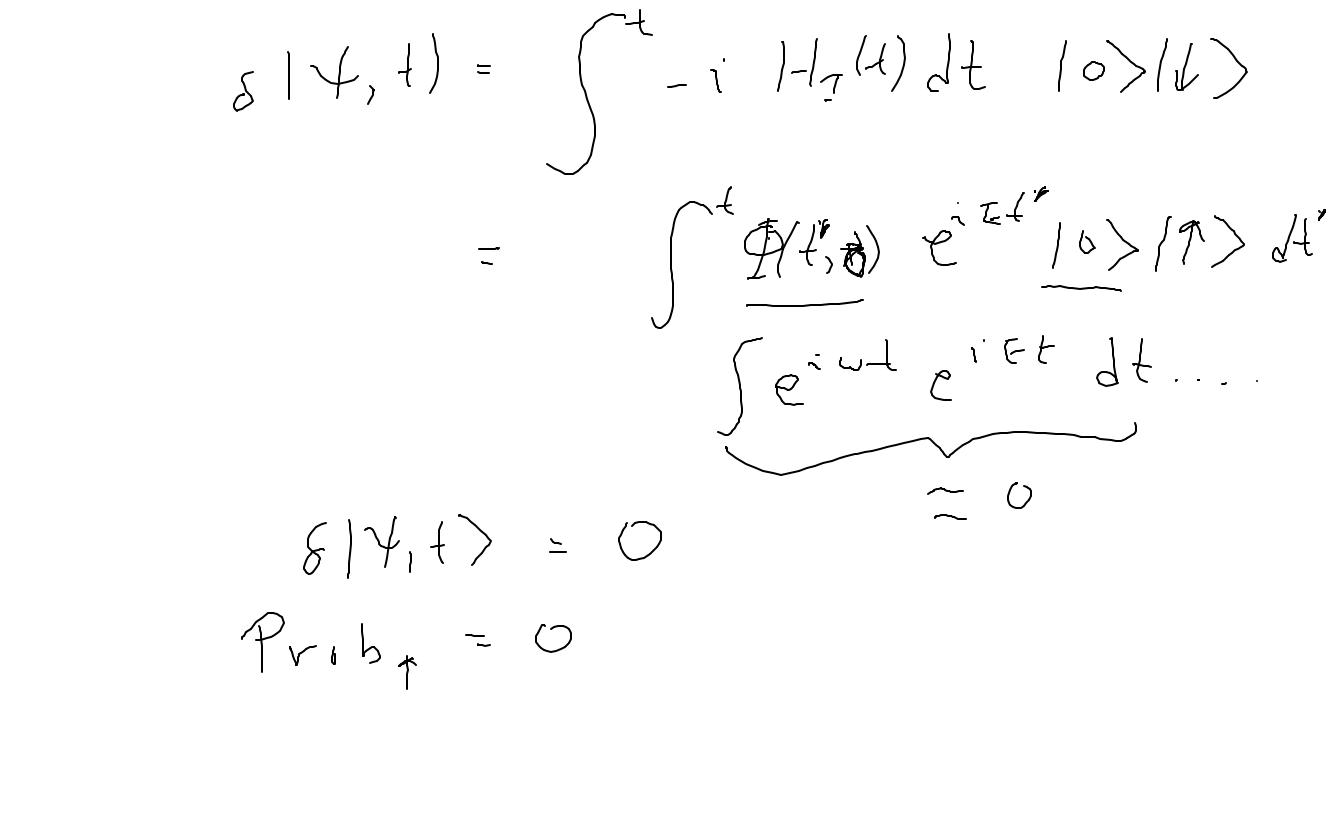 δ|ψ, t) = ∫^t -i H_I(t) dt |0>|↓>
= ∫^t Φ(t', 0) e^{iEt'} |0>|↑> dt'
∫ e^{iωt} e^{iEt} dt .....
≈ 0
δ|ψ, t> = 0
Prob_↑ = 0